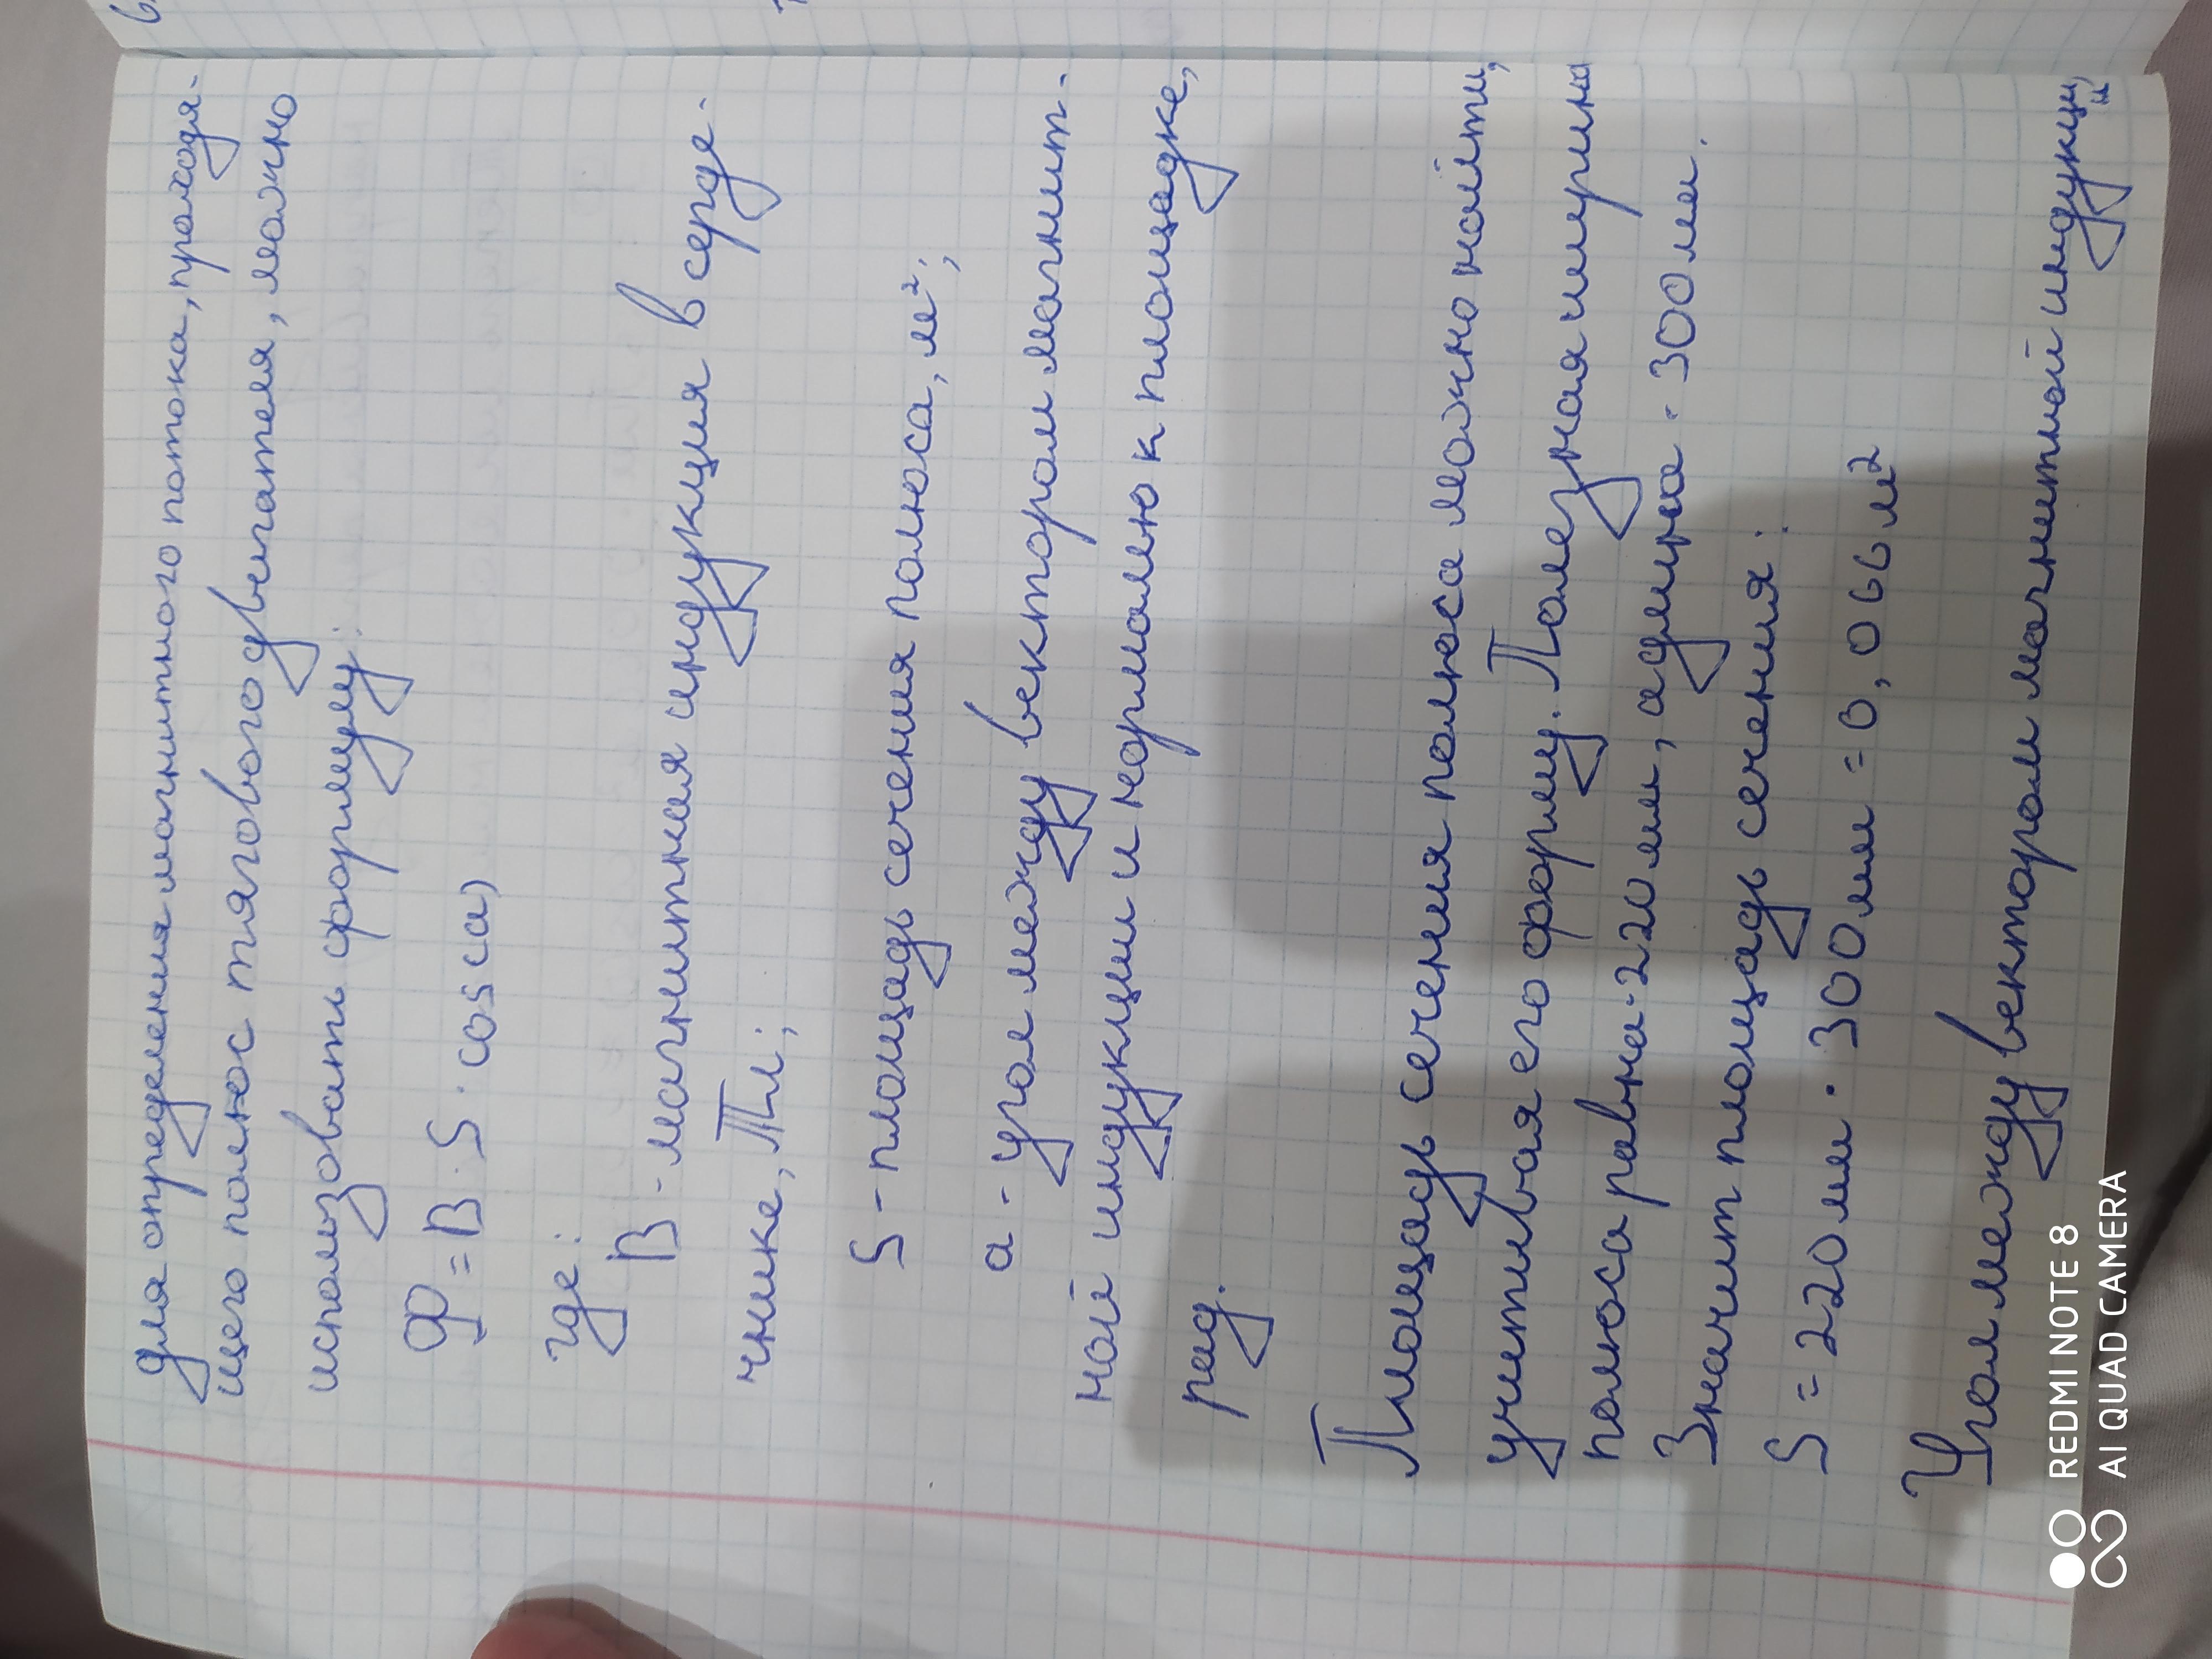 для определения магнитного потока, проходя-
щего полюс тягового двигателя, можно
использовать формулу:
Ф = B · S · cos(a)
где:
B - магнитная индукция в серде-
чнике, Тл;
S - площадь сечения полюса, м²;
a - угол между вектором магнит-
ной индукции и нормалью к площадке,
рад.
Площадь сечения полюса можно найти,
учитывая его форму. Полезная ширина
полюса равна - 220 мм, а длина - 300 мм.
Значит площадь сечения:
S = 220 мм · 300 мм = 0,066 м²
Угол между вектором магнитной индукции,
REDMI NOTE 8
AI QUAD CAMERA